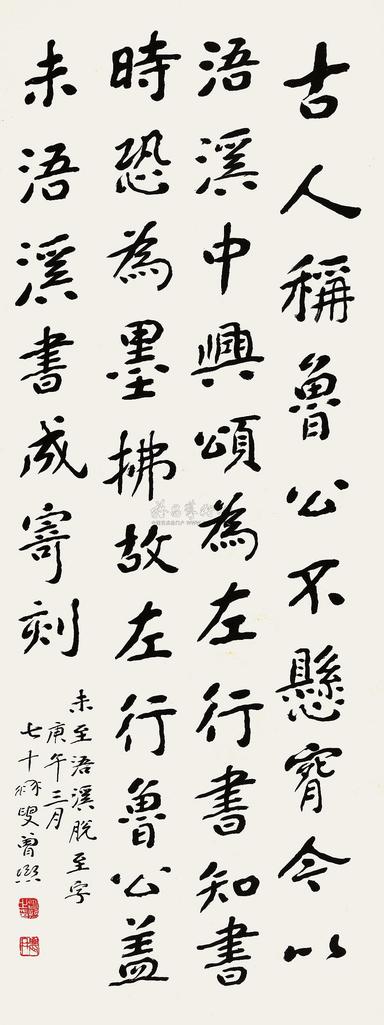 古人稱魯公不懸賓令以
浯溪中興頌為左行書知書
時恐為墨拂故左行魯公蓋
未浯溪書成寄刻
未至浯溪脫至字
庚午三月
七十叟曾熙